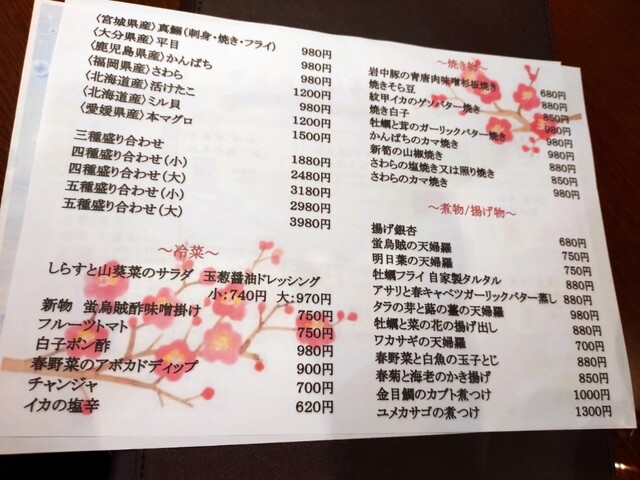 〈宮城県産〉真鰯(刺身・焼き・フライ) 980円
〈大分県産〉平目 980円
〈鹿児島県産〉かんぱち 980円
〈福岡県産〉さわら 1200円
〈北海道産〉活けたこ 980円
〈北海道産〉ミル貝 1200円
〈愛媛県産〉本マグロ 1500円
三種盛り合わせ 1880円
四種盛り合わせ(小) 2480円
四種盛り合わせ(大) 3180円
五種盛り合わせ(小) 2980円
五種盛り合わせ(大) 3980円
～冷菜～
しらすと山葵菜のサラダ 玉葱醤油ドレッシング
小:740円 大:970円
新物 蛍烏賊酢味噌掛け 750円
フルーツトマト 750円
白子ポン酢 980円
春野菜のアボカドディップ 900円
チャンジャ 700円
イカの塩辛 620円
～焼き物～
岩中豚の青唐肉味噌杉板焼き 680円
焼きそら豆 880円
紋甲イカのゲソバター焼き 850円
焼き白子 980円
牡蠣と茸のガーリックバター焼き 980円
かんぱちのカマ焼き 880円
新筍の山椒焼き 880円
さわらの塩焼き又は照り焼き 850円
さわらのカマ焼き 980円
～煮物/揚げ物～
揚げ銀杏 680円
蛍烏賊の天婦羅 750円
明日葉の天婦羅 750円
牡蠣フライ 自家製タルタル 880円
アサリと春キャベツガーリックバター蒸し 880円
タラの芽と蕗の薹の天婦羅 980円
牡蠣と菜の花の揚げ出し 880円
ワカサギの天婦羅 700円
春野菜と白魚の玉子とじ 880円
春菊と海老のかき揚げ 850円
金目鯛のカブト煮つけ 1000円
ユメカサゴの煮つけ 1300円